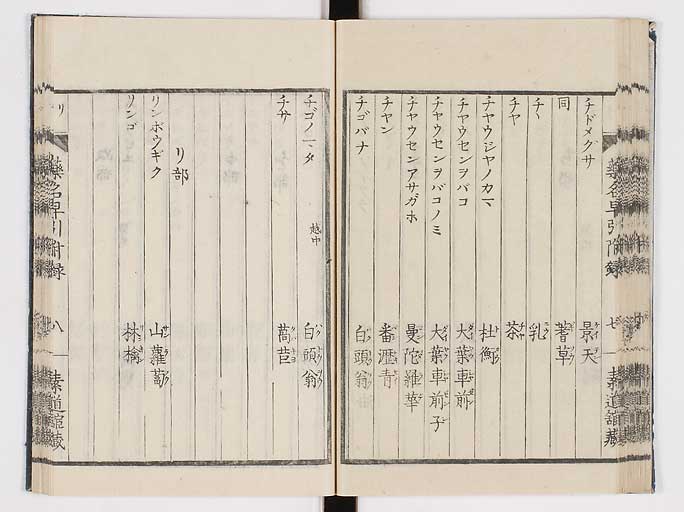 チドメグサ 景天
同 蓍草
チヽ 乳
チヤ 茶
チヤウジヤノカマ 杜衡
チヤウセンヲバコ 大葉車前
チヤウセンヲバコノミ 大葉車前子
チヤウセンアサガホ 曼陀羅華
チヤン 番瀝青
チゴバナ 白頭翁
チゴノマヽタ 越中 白頭翁
チサ 萵苣
リ部
リンボウギク 山蘿蔔
リンゴ 林檎
藥名早引附録 七 素道舘藏
リ 藥名早引附録 八 素道舘藏